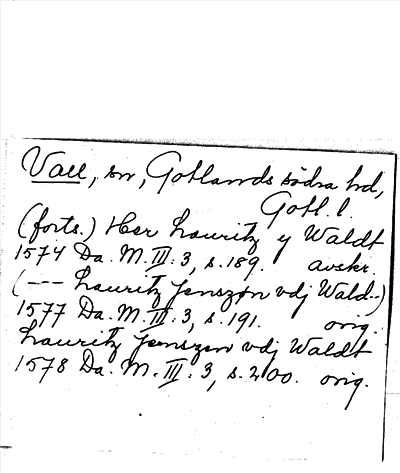 Vall, sn, Gotlands södra hd,
Gotl. l.
(forts.) Her Lauritz y Waldt
1574 Da. M. III: 3, s. 189. avskr.
(--- Lauritz Jenszøn vdj Wald--)
1577 Da. M. III: 3, s. 191. orig.
Lauritz Jenszøn vdj Waldt
1578 Da. M. III: 3, s. 200. orig.